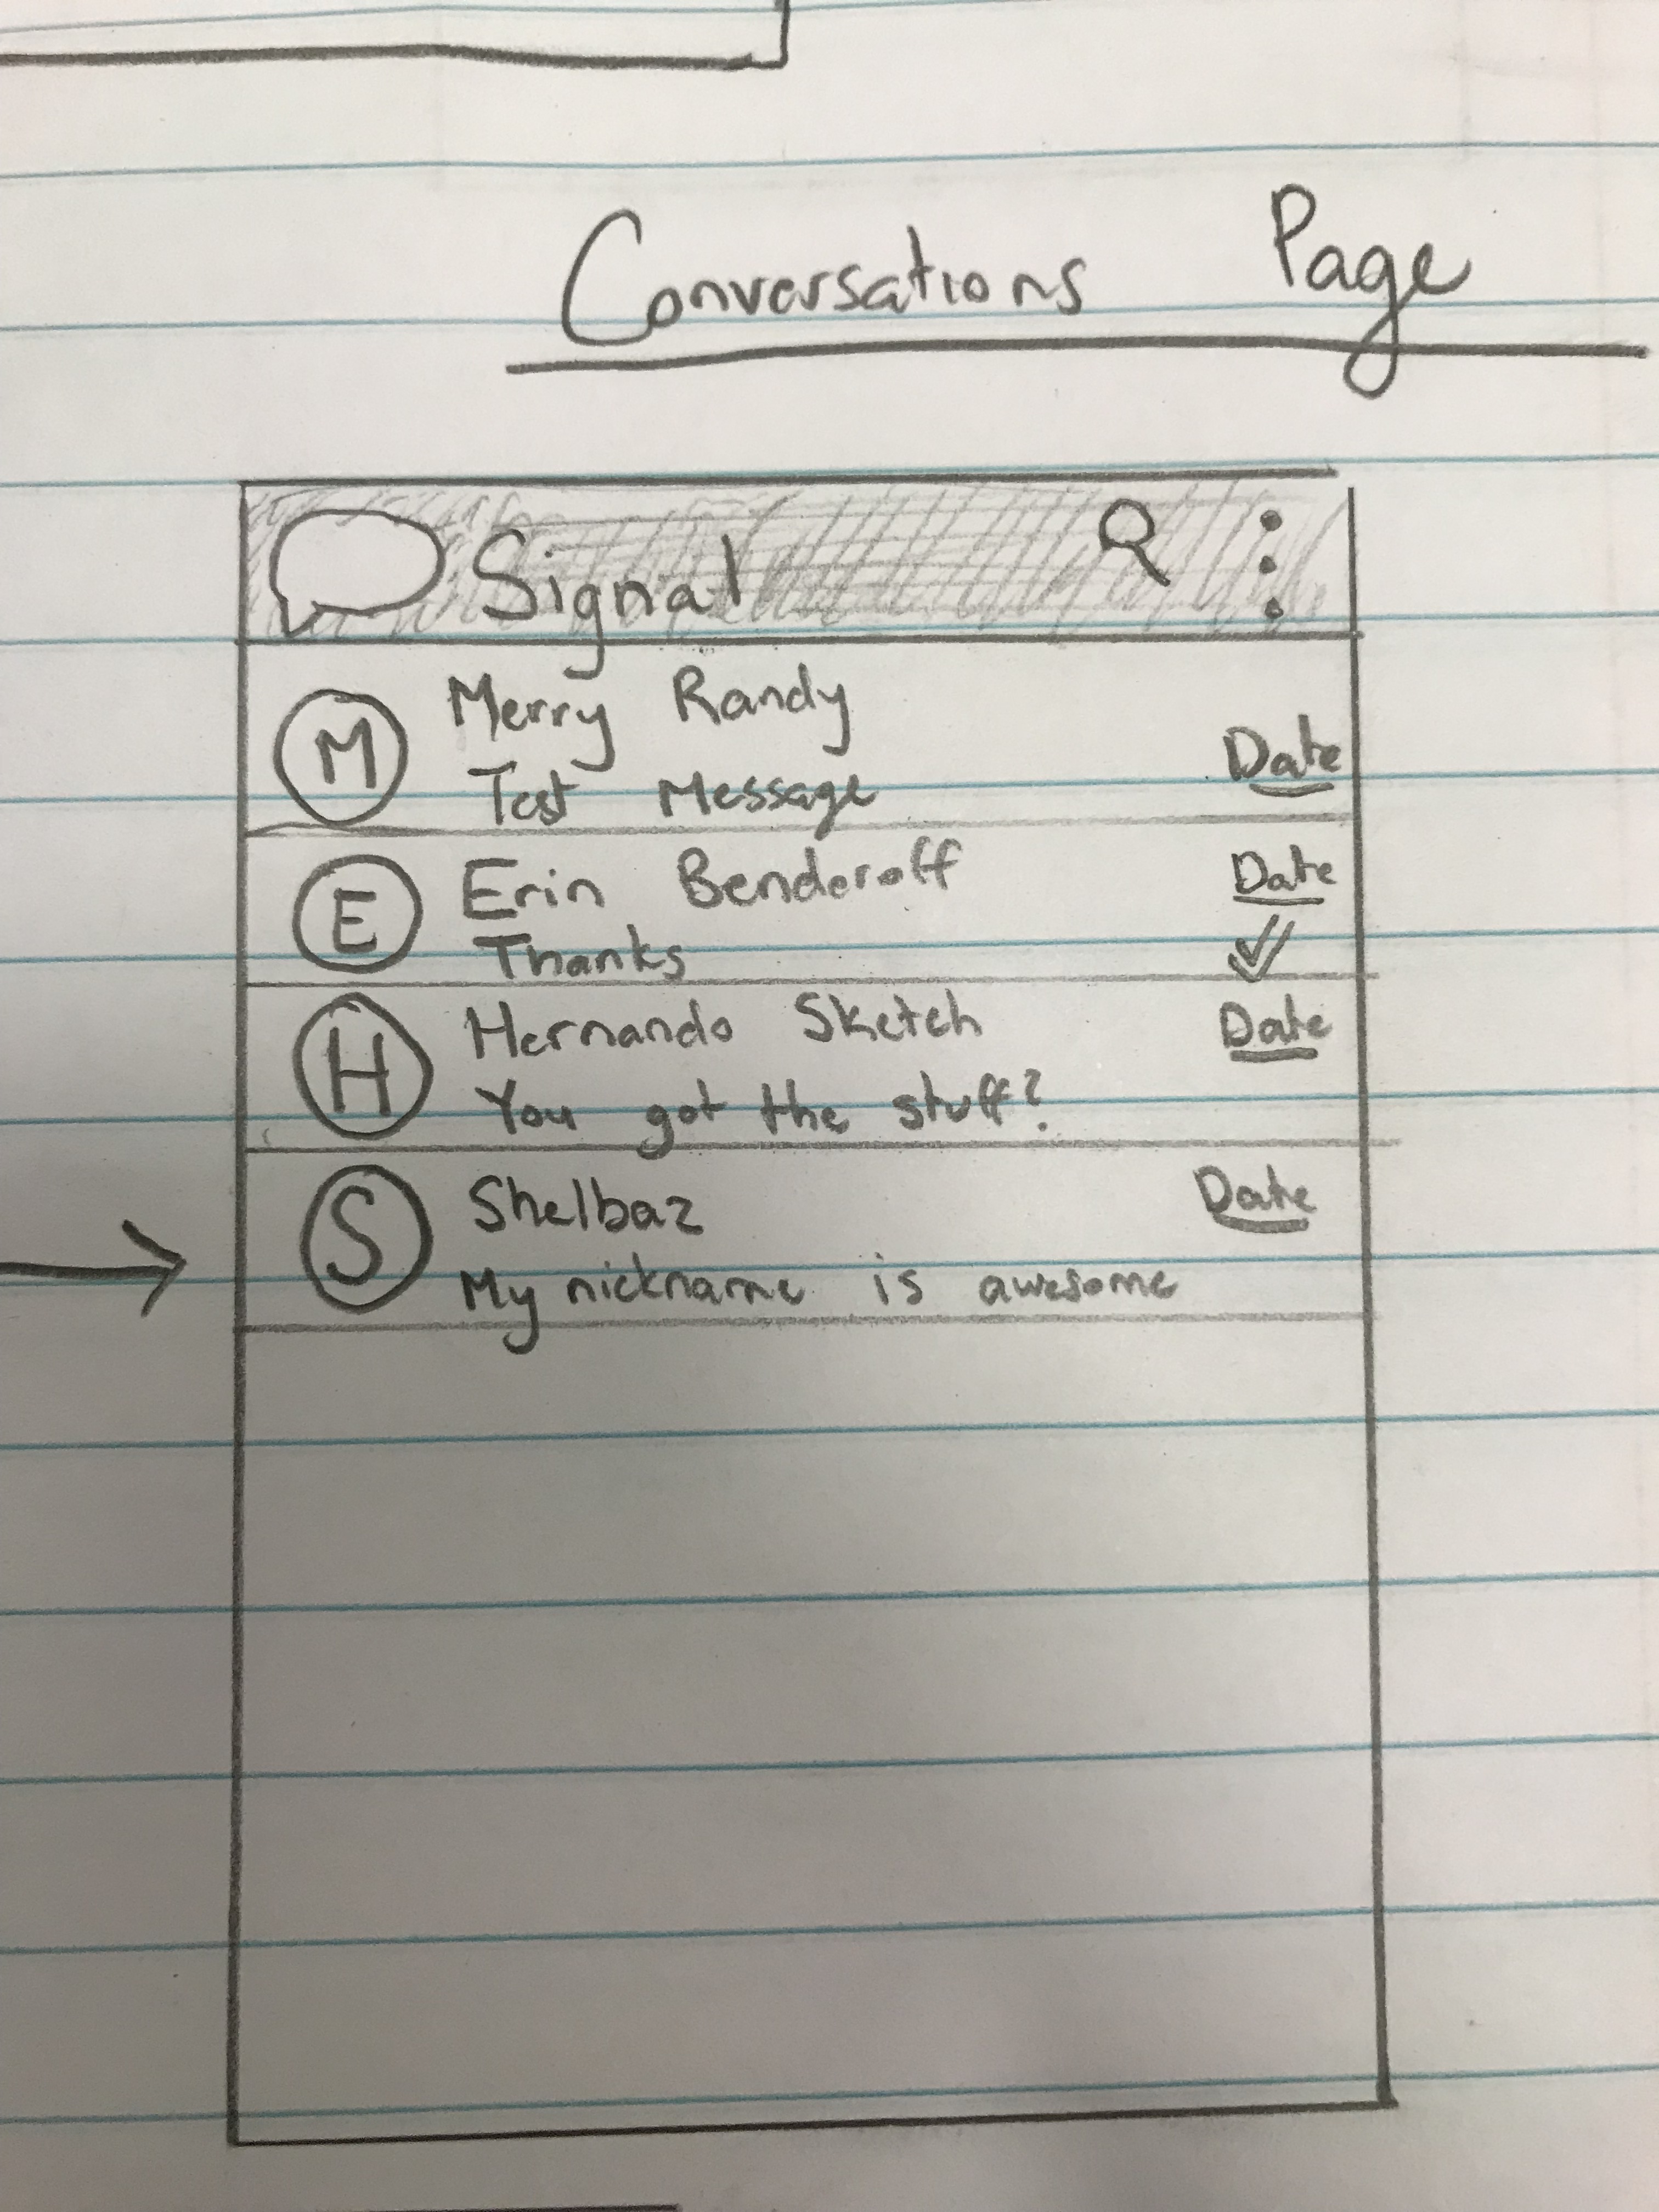 Conversations Page
Signal
M
Merry Randy
Test Message
Date
E
Erin Benderoff
Date
Thanks
H
Hernando Sketch
Date
You got the stuff?
S
Shelbaz
Date
My nickname is awesome